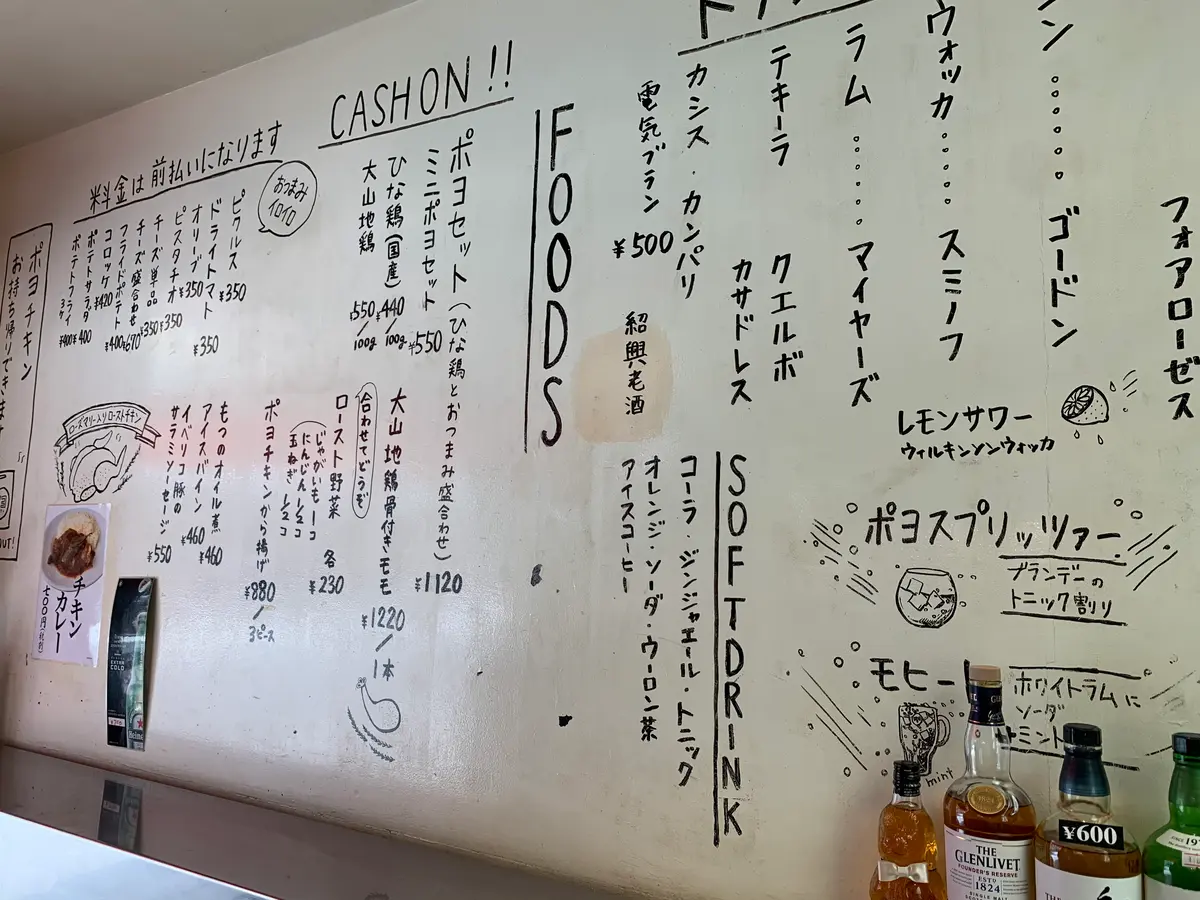 フォアローゼス
ン・・・・・・ゴードン
ウォッカ・・・・・スミノフ
ラム・・・・・マイヤーズ
テキーラ クエルボ
カサドレス
カシス・カンパリ
電気ブラン ¥500
紹興老酒
レモンサワー
ウィルキンソンウォッカ
ポヨスプリッツァー
ブランデーの
トニック割り
モヒー
ホワイトラムに
ソーダ
+ミント
mint
SOFT DRINK
コーラ・ジンジャエール・トニック
オレンジ・ソーダ・ウーロン茶
アイスコーヒー
FOODS
CASHON!!
ポヨセット(ひな鶏とおつまみ盛合わせ) ¥1120
ミニポヨセット ¥550
ひな鶏(国産) ¥440/100g
大山地鶏 ¥550/100g
大山地鶏骨付きモモ ¥1220/1本
合わせてどうぞ
ロースト野菜 各¥230
じゃがいも1コ
にんじん1/2コ
玉ねぎ1/2コ
ポヨチキンから揚げ ¥880/3ピース
料金は前払いになります
おつまみ
イロイロ
ピクルス ¥350
ドライトマト ¥350
オリーブ ¥350
ピスタチオ ¥350
チーズ単品 ¥350
チーズ盛合わせ ¥670
フライドポテト ¥400
コロッケ ¥420
ポテトサラダ ¥400
ポテトフライ 3ケ ¥400
もつのオイル煮 ¥460
アイスバイン ¥460
イベリコ豚の
サラミソーセージ ¥550
ローズマリー入りローストチキン
ポヨチキン
お持ち帰りできます
OUT!
チキン
カレー
七〇〇円(税別)
EXTRA
COLD
Heine
THE
GLENLIVET
FOUNDER'S RESERVE
ESTD
1824
SINGLE MALT
¥600
THE
SINCE 19